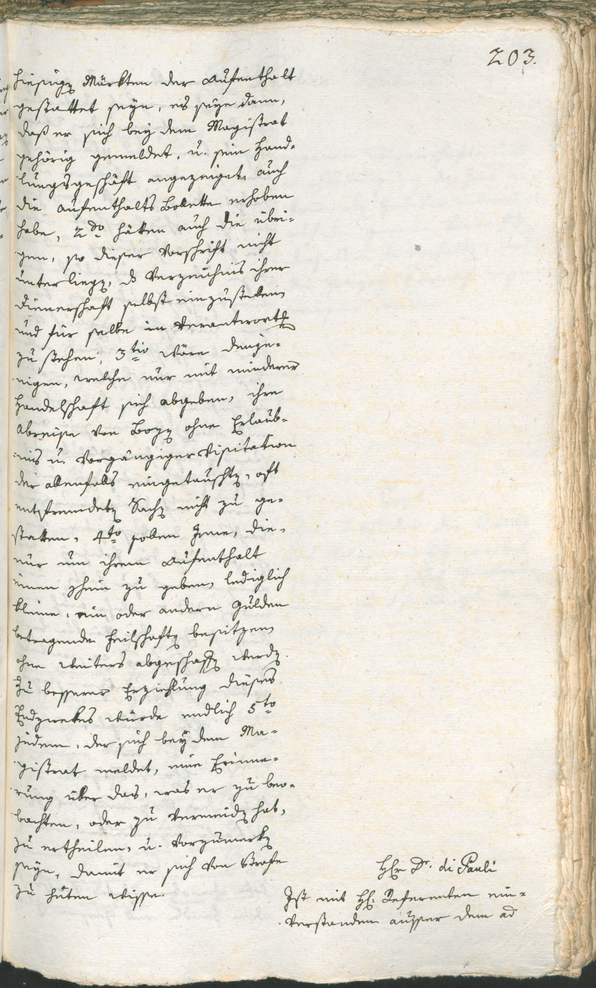 203.
hiesigen Märkten der Aufenthalt
gestattet seyn, es seye dann,
daß er sich bey dem Magistrat
gehörig gemeldet, u. sein Hand-
lungsgeschäft angezeiget, auch
die Aufenthalts Bolette erhoben
habe, 2do hätten auch die übri-
gen, so dieser Vorschrift nicht
unterliegen, das Verzeichnis ihrer
Dienerschaft selbst einzustellen
und für selbe in Verantwortung
zu stehen. 3tio wäre denje-
nigen, welche nur mit minderer
Handelschaft sich abgeben, ihre
Abreise von Bozen ohne Erlaub-
nis u. vorgängiger Visitation
der allenfalls eingetauschten, oft
entfremdeten Sachen nicht zu ge-
statten, 4to sollen Jene, die
nur um ihrem Aufenthalt
einen Schein zu geben, lediglich
kleine, ein oder andern Gulden
betragende Feilschaften besitzen
ohne weiters abgeschafft werden.
Zu besserer Erziehlung dieses
Endzweckes würde endlich 5to
jedem, der sich bey dem Ma-
gistrat meldet, eine Erinne-
rung über das, was er zu beo-
bachten, oder zu vermeiden hat,
zu ertheilen, u. vorzumerken
seyn, damit er sich von Strafe
zu hüten wisse.
HH. Dr. di Pauli
Ist mit HH. Referenten ein-
verstanden ausser dem ad